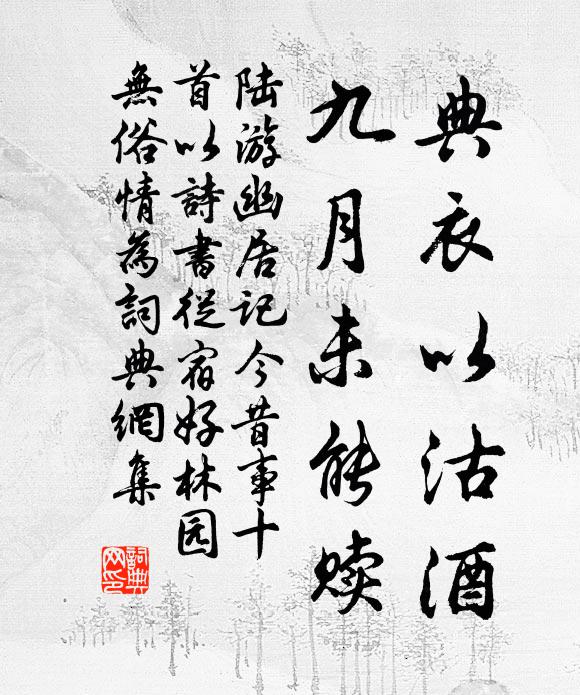 典衣以沽酒
九月未能赎
陆游幽居记今昔事十
首以詩書從宿好林园
無俗情為詞典網集
詞典
网印